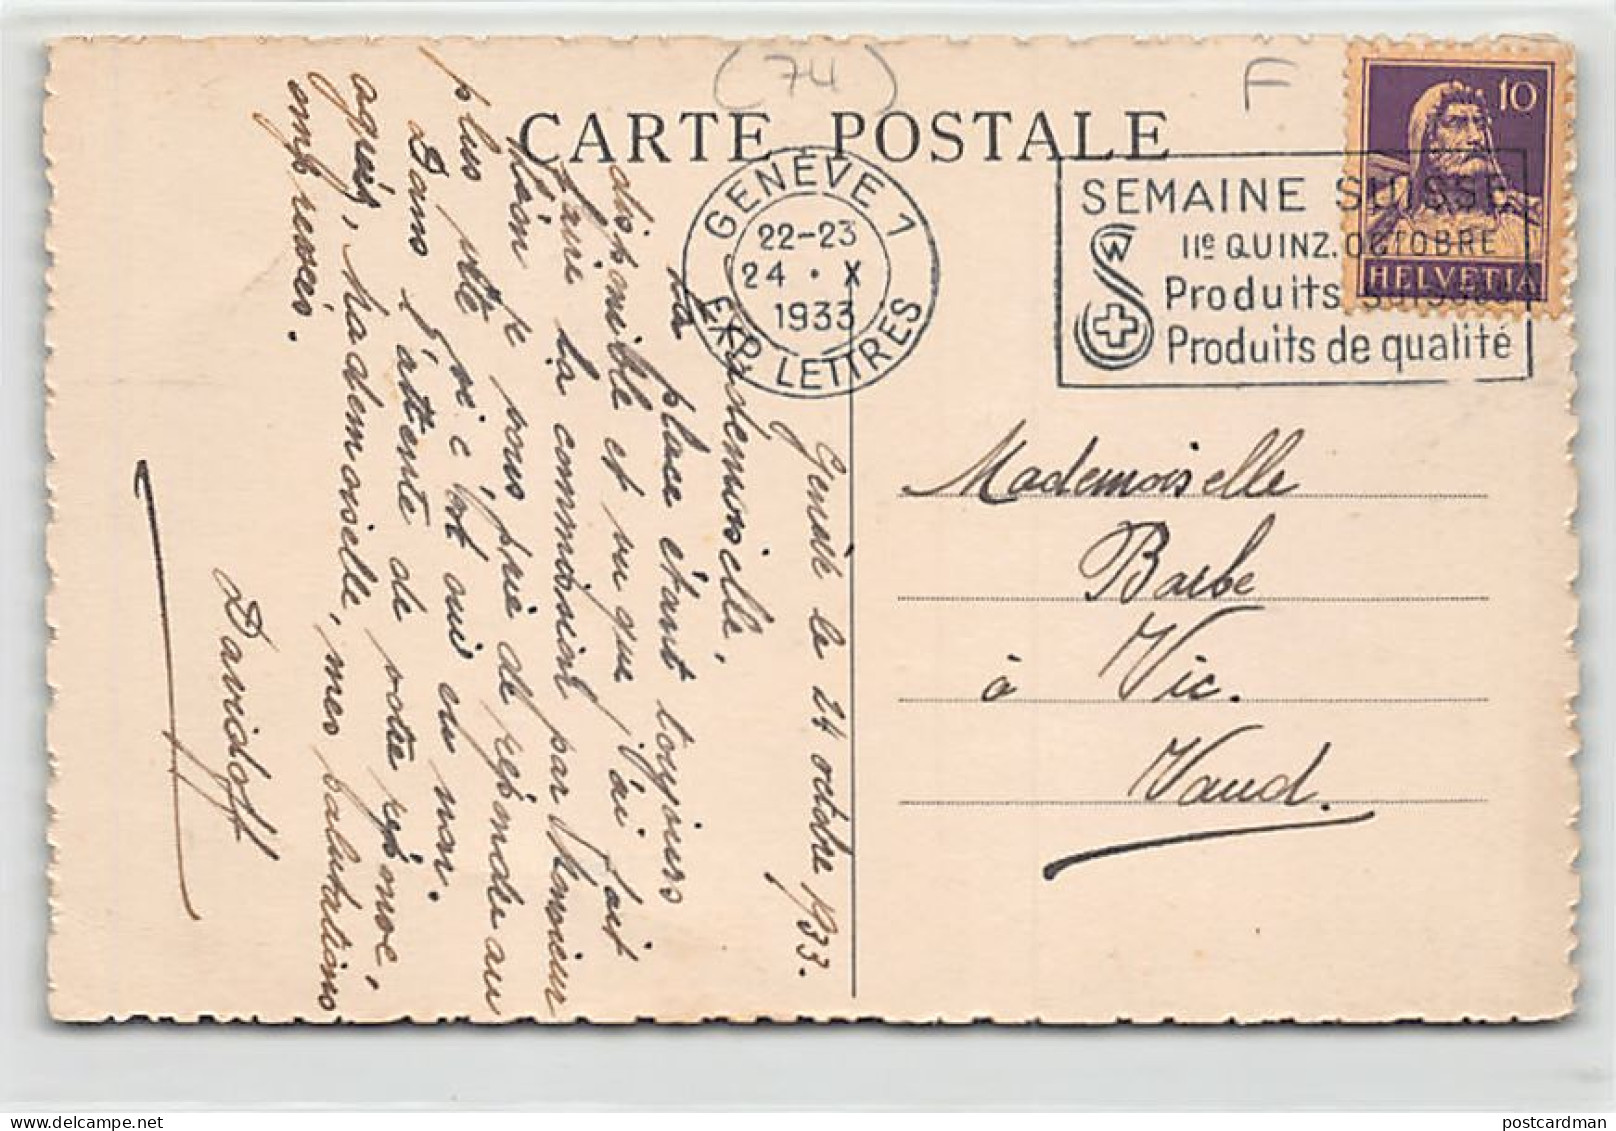 (74)
F
CARTE POSTALE
10
HELVETIA
GENÈVE 1
22-23
24 · X
1933
EXP. LETTRES
SEMAINE SUISSE
IIe QUINZ. OCTOBRE
Produits suisses
Produits de qualité
Genève le 24 octobre 1933.
Mademoiselle,
La place étant toujours
disponible et vu que j'ai fait
faire la commission par Monsieur
je vous prie de répondre au
plus vite si c'est oui ou non.
Dans l'attente de votre réponse,
agréez, Mademoiselle, mes salutations
empressées.
Davidoff
Mademoiselle
Barbe
à Vic.
Vaud.
postcardman